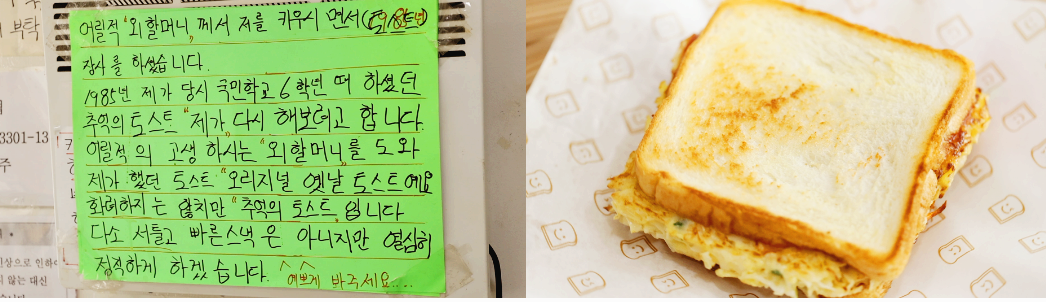 부탁
어릴적 "외할머니"께서 저를 키우시 면서 (토스트)
장사 를 하셨습니다.
1985년 제가 당시 국민학교 6학년 때 하셨던
추억의 토스트 "제가" 다시 해보려고 합니다.
어릴적 의 고생 하시는 "외할머니"를 도와
제가 했던 토스트 "오리지널 옛날" 토스트예요
화려하지 는 않치만 "추억의 토스트" 입니다
다소 서툴고 빠른스낵 은 아니지만 열심히
정직하게 하겠 습니다. ^ ^ 예쁘게 봐주세요....
3301-13
주
인상으로 인하
않는 대신